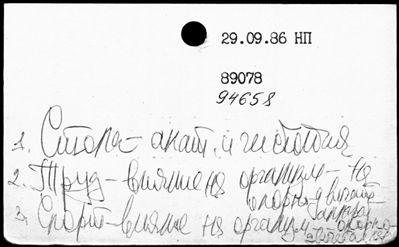 29.09.86 НП
89078
94658
1. Стопа - анат. и гистология
2. Труд - влияние на организм - на
опорно-двигат. аппарат
3. Спорт - влияние на организм - опорно-
двигат.